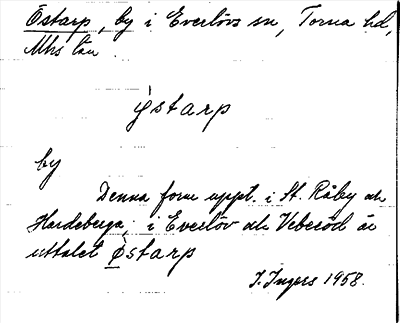 Östarp, by i Everlövs sn, Torna hd,
Mhs län.
ỳstarp
by
Denna form uppt. i St. Råby och
Hardeberga; i Everlöv och Veberöd är
uttalet ø̀starp
I. Ingers 1958.